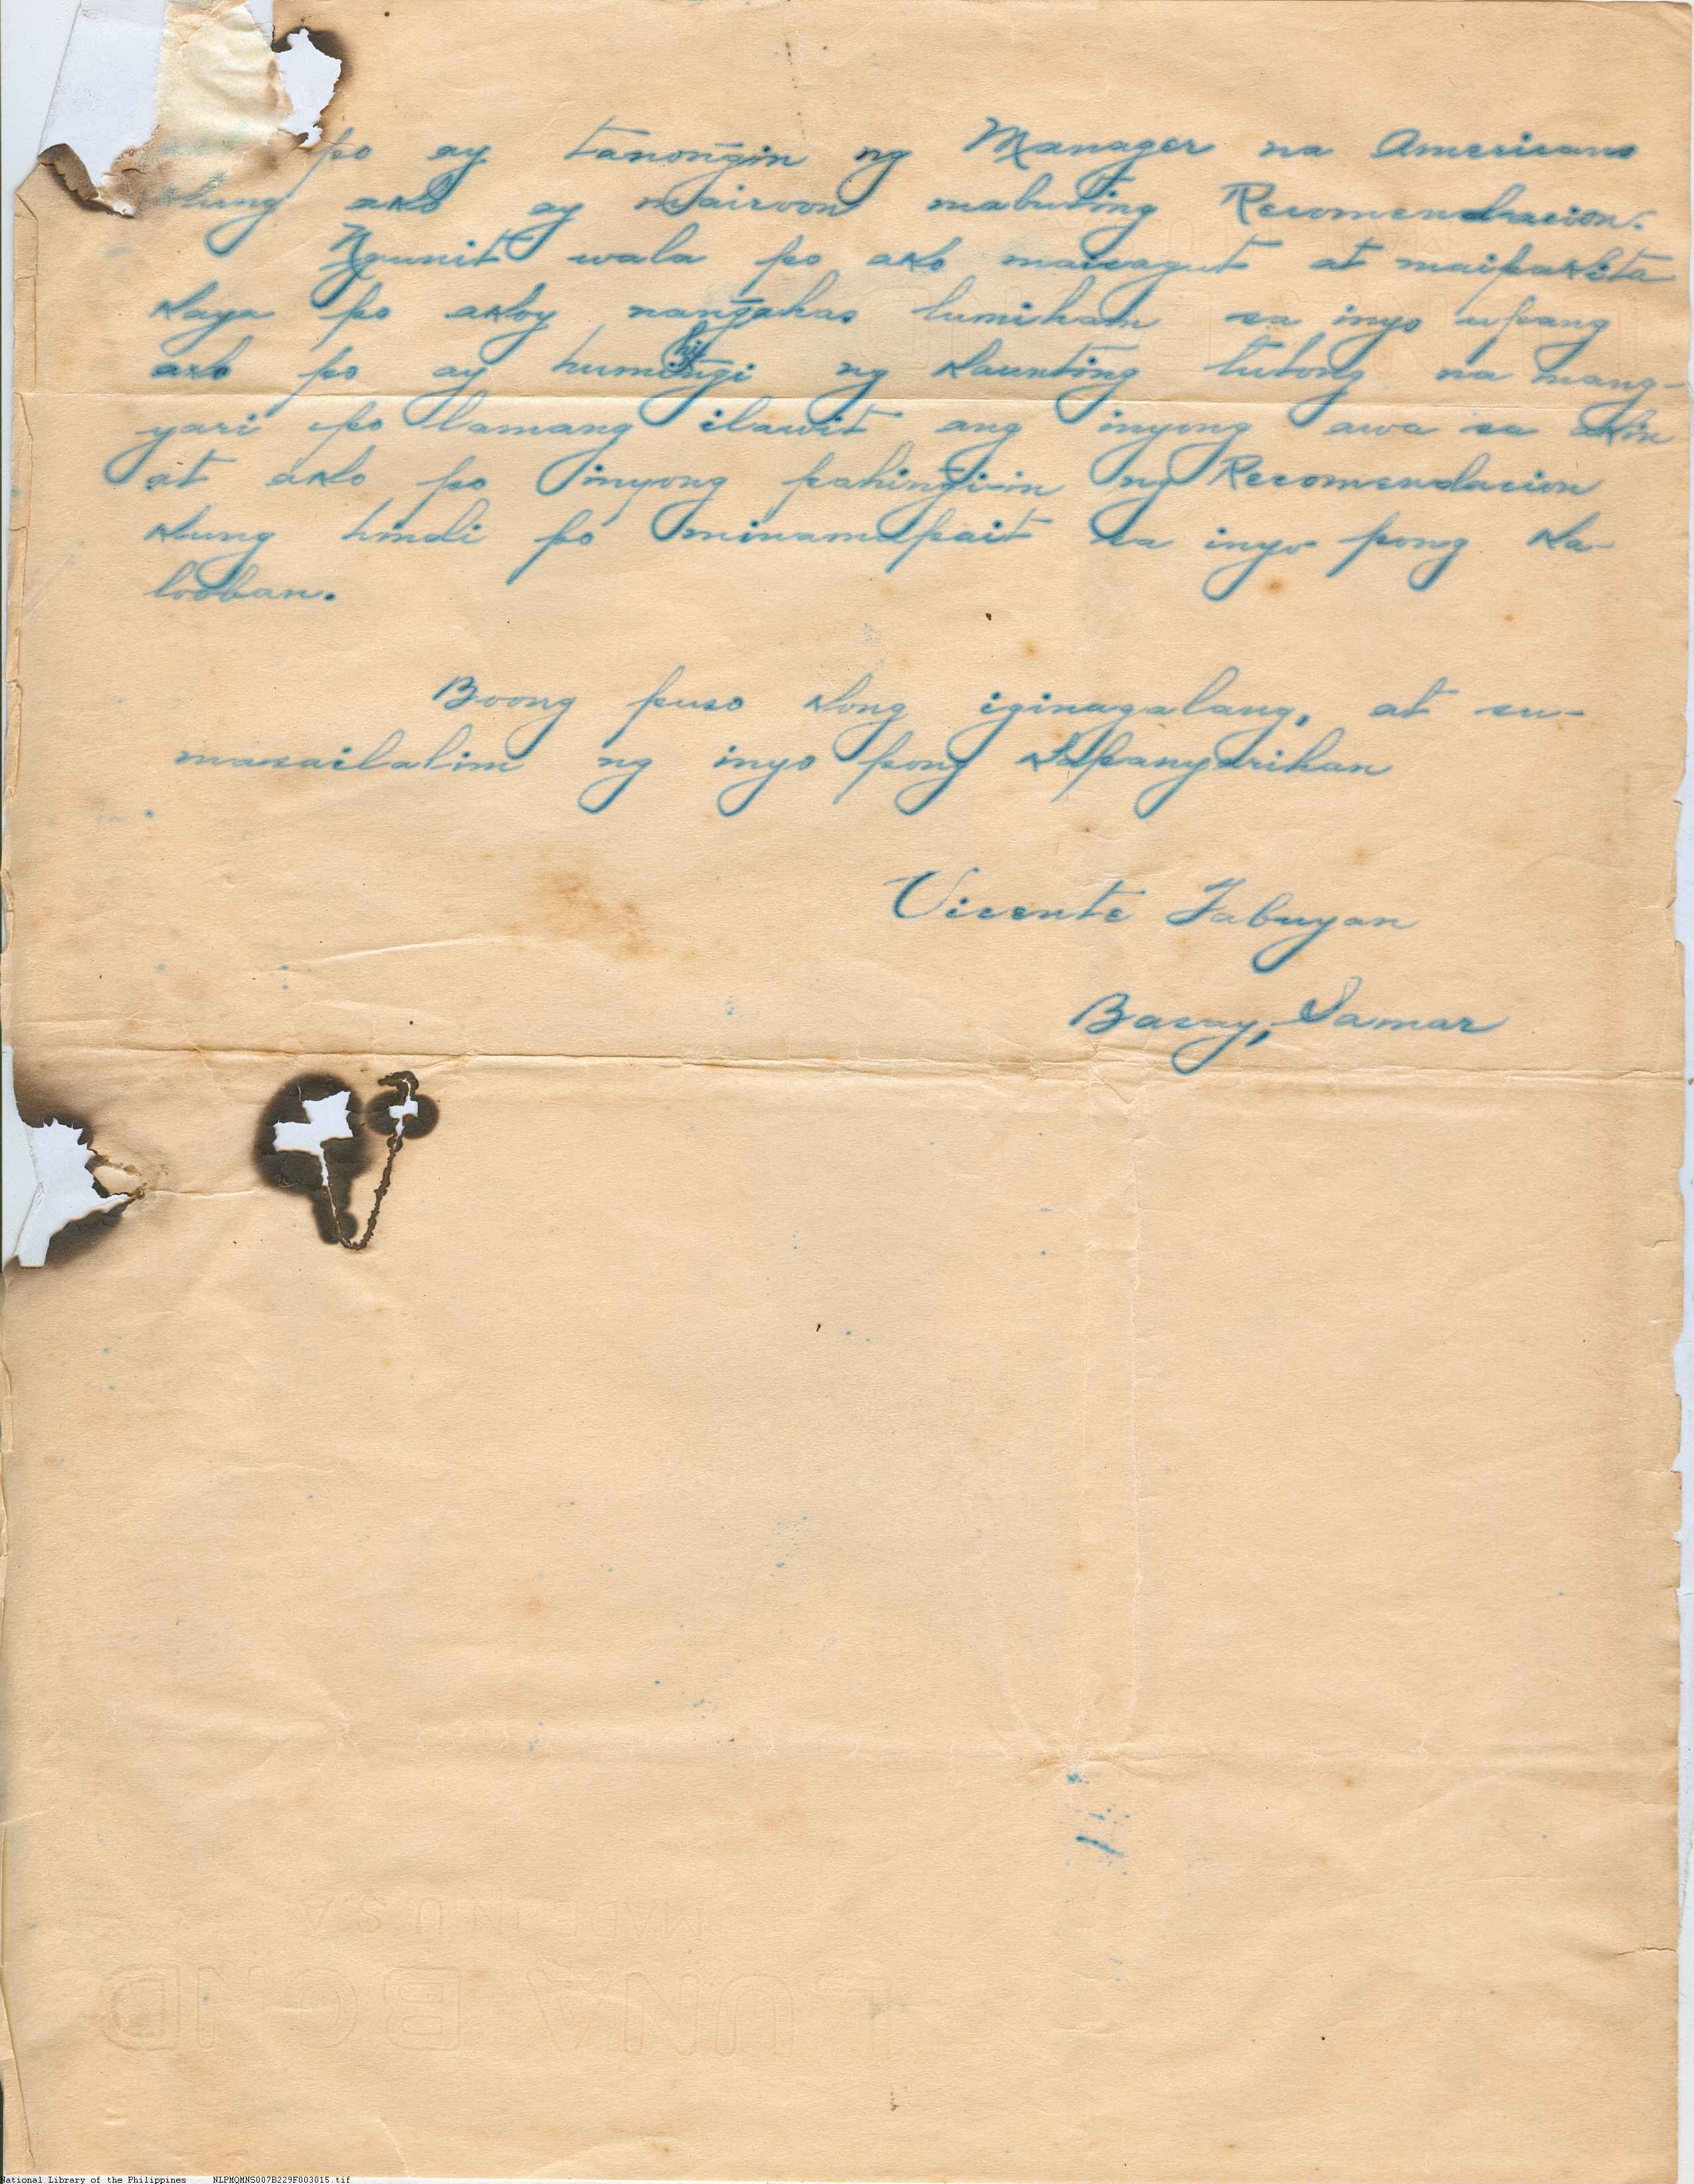 po ay tanoñgin ng Manager na Americano
kung ako ay mairoon mabuting Recomendracion.
Ngunit wala po ako maisagut at maipakita
kaya po akoy nañgahas lumiham sa inyo upang
ako po ay humiñgi ng kaunting tulong na mang-
yari po lamang ilawit ang inyong awa sa akin
at ako po inyong pahiñgi-in ng Recomendacion
kung hindi po minamapait sa inyo pong ka-
looban.
Boong puso kong iginagalang, at su-
masailalim ng inyo pong kapanyarihan
Vicente Tabuyan
Basay, Samar
MADE IN U S A
LUNA BOND
National Library of the Philippines NLPMQMNS007B229F003015.tif